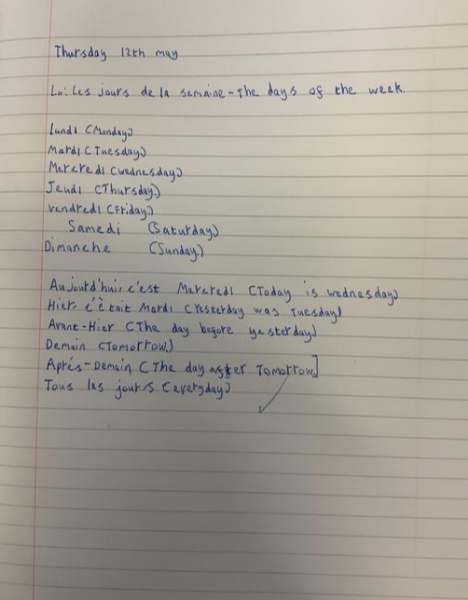 Thursday 12th may
Lo: Les jours de la semaine - The days of the week.
Lundi (Monday)
Mardi (Tuesday)
Mercredi (wednesday)
Jeudi (Thursday)
vendredi (Friday)
Samedi (Saturday)
Dimanche (Sunday)
Aujourd'hui c'est Mercredi (Today is wednesday)
Hier c'était Mardi (Yesterday was Tuesday)
Avant-Hier (The day before yesterday)
Demain (Tomorrow)
Après-Demain (The day after Tomorrow)
Tous les jours (everyday)